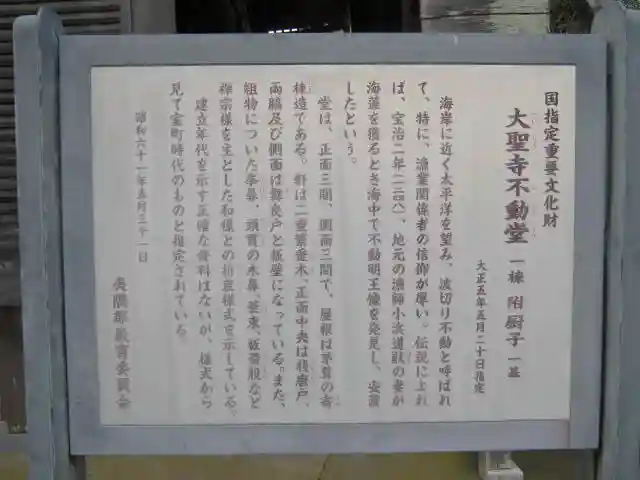 国指定重要文化財
大聖寺不動堂 一棟 附厨子 一基
大正五年五月二十日指定
海岸に近く太平洋を望み、波切り不動と呼ばれ
て、特に、漁業関係者の信仰が厚い。伝説によれ
ば、宝治二年（一二四八）、地元の漁師小浜道獣の妻が
海藻を獲るとき海中で不動明王像を発見し、安置
したという。
堂は、正面三間、側面三間で、屋根は茅葺の寄
棟造である。軒は二重繁垂木、正面中央は桟唐戸、
両脇及び側面は舞良戸と板壁になっている。また、
組物についた拳鼻、頭貫の木鼻、蓑束、板蟇股など
禅宗様を主とした和様との折衷様式を示している。
建立年代を示す正確な資料はないが、様式から
見て室町時代のものと推定されている。
昭和六十一年三月三十一日
夷隅郡 教育委員会